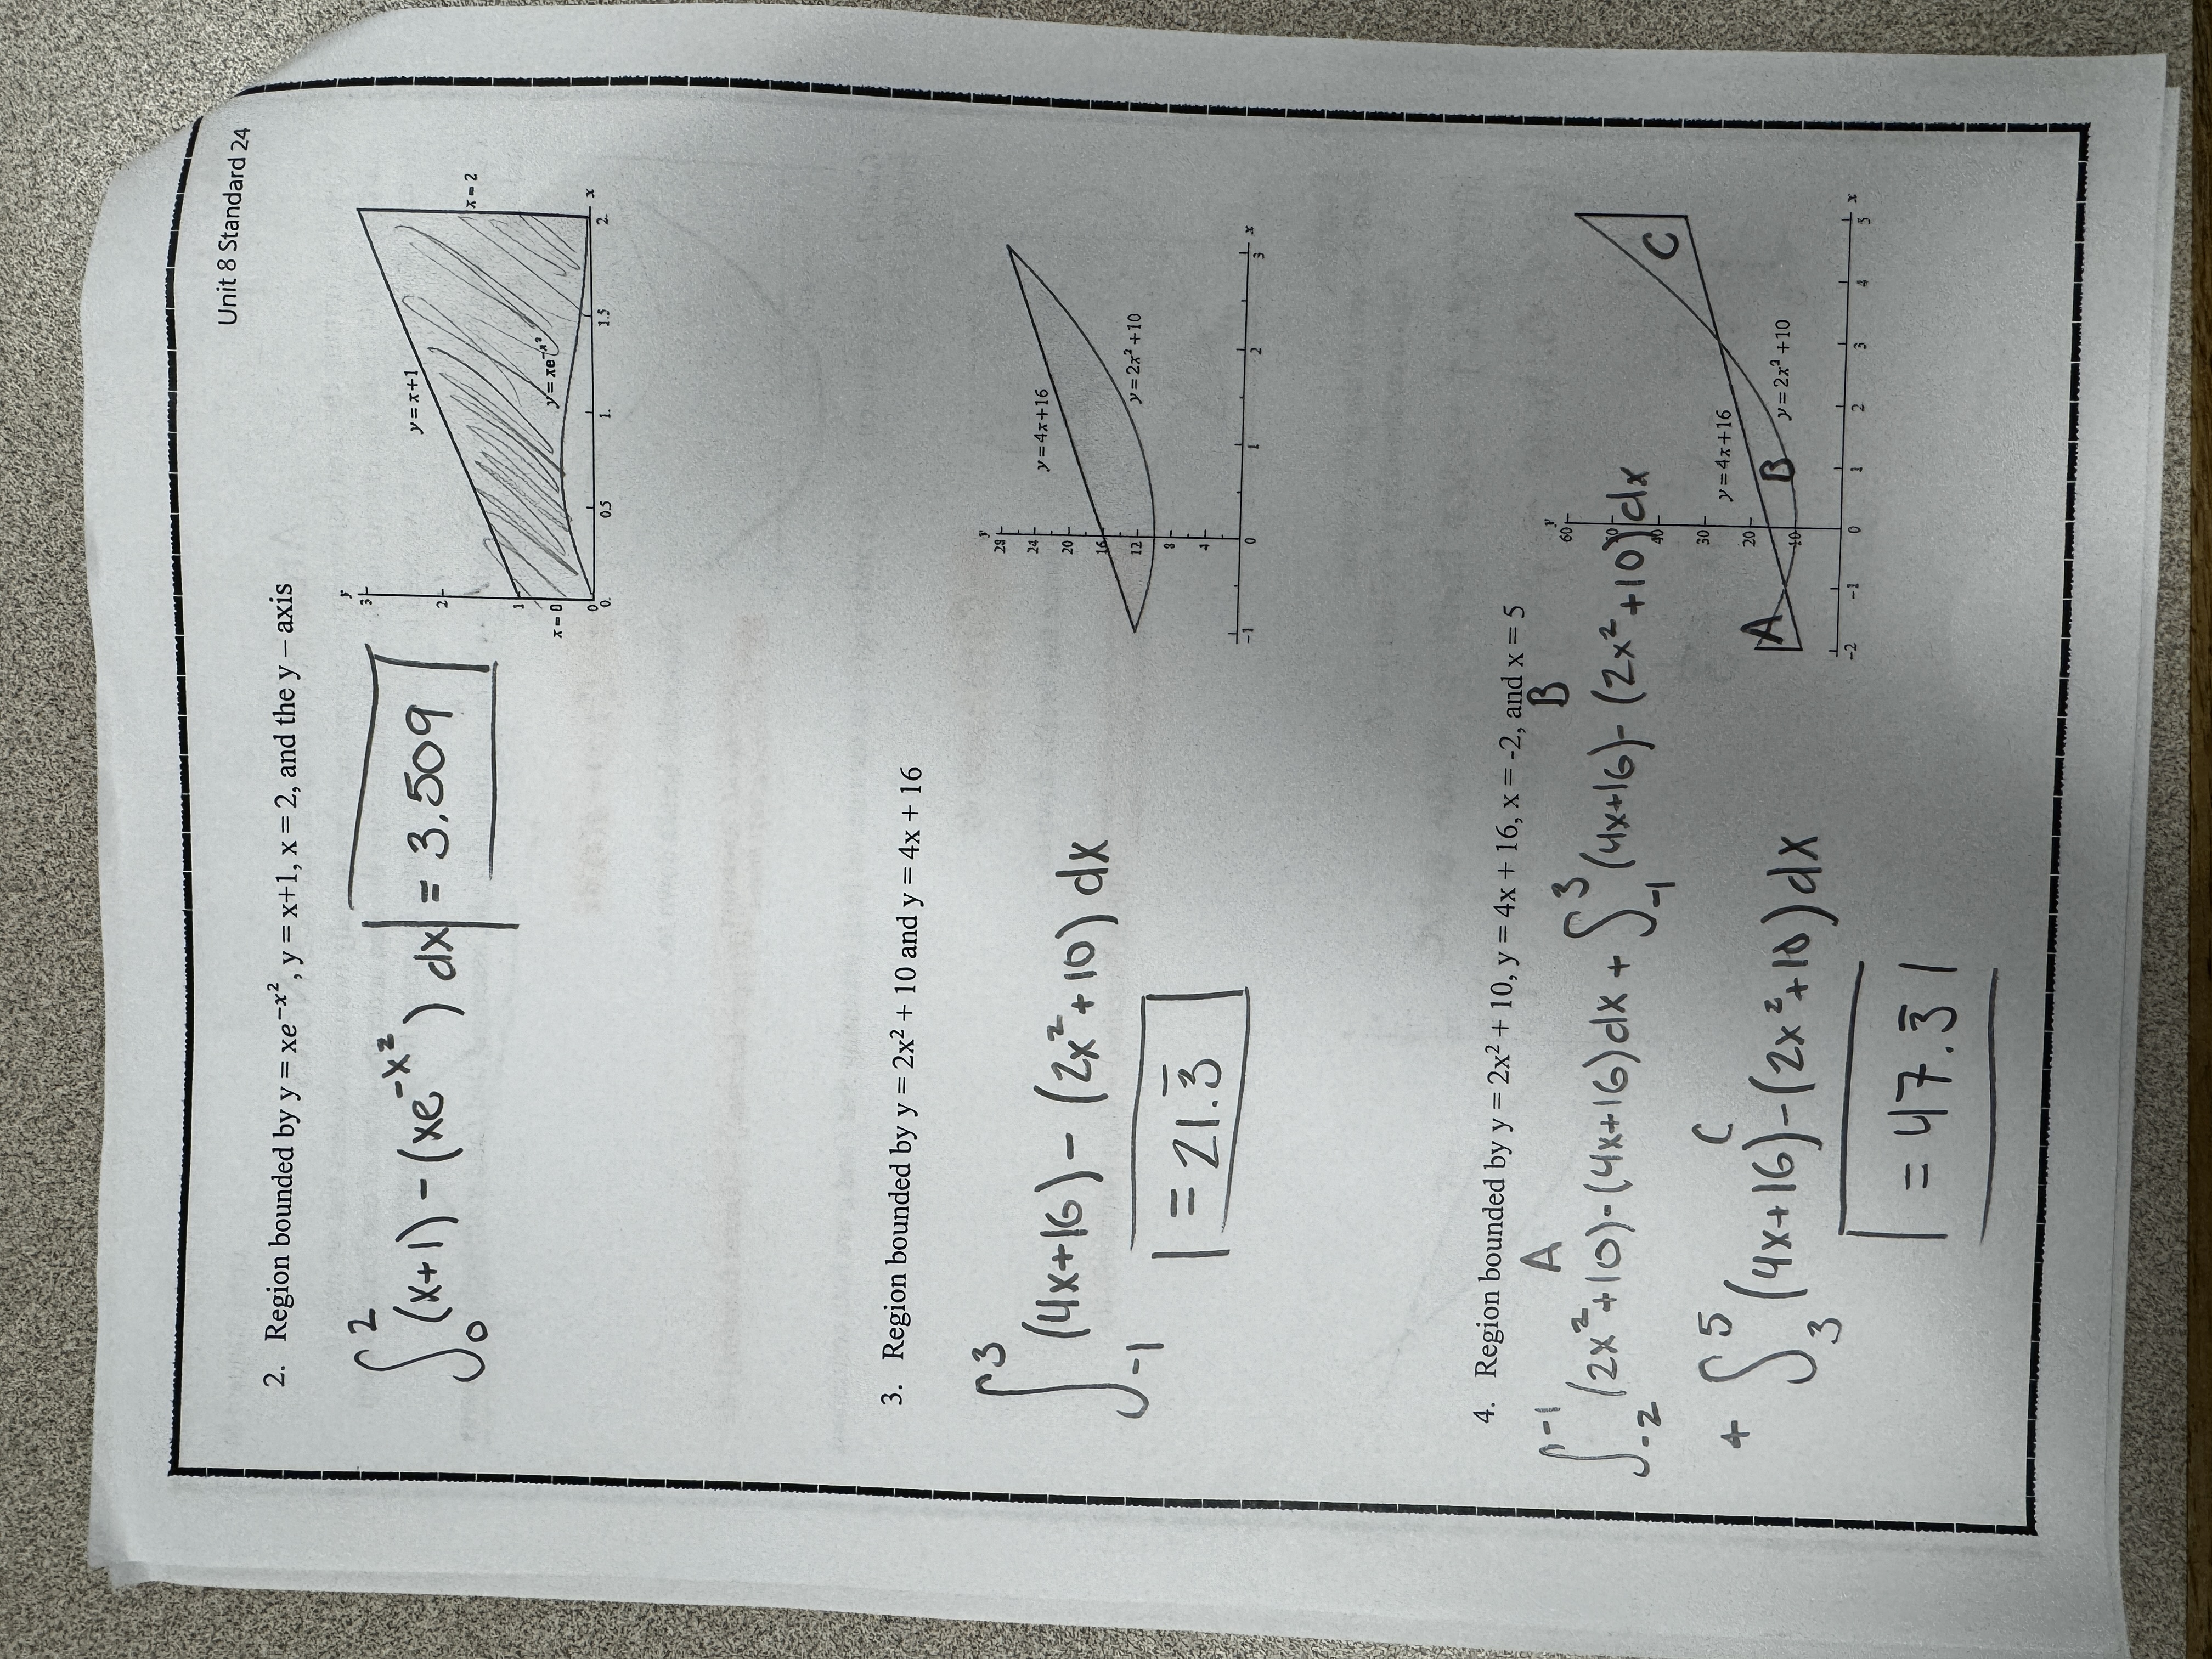 Unit 8 Standard 24
2. Region bounded by y = xe^{-x²}, y = x+1, x = 2, and the y – axis
∫₀² (x+1) - (xe^{-x²}) dx = 3.509
y
3
y = x+1
2
x = 2
1
y = xe^{-x²}
x = 0
0
0. 0.5 1. 1.5 2. x
3. Region bounded by y = 2x² + 10 and y = 4x + 16
∫₋₁³ (4x+16) - (2x²+10) dx
= 21.3̅
y
28
24
y = 4x+16
20
16
12
y = 2x² +10
8
4
-1 0 1 2 3 x
4. Region bounded by y = 2x² + 10, y = 4x + 16, x = -2, and x = 5
A B
∫₋₂⁻¹ (2x²+10) - (4x+16) dx + ∫₋₁³ (4x+16) - (2x²+10) dx
C
+ ∫₃⁵ (4x+16) - (2x²+10) dx
= 47.3̅
y
60
40
C
30
y = 4x+16
20
A B
y = 2x² +10
10
-2 -1 0 1 2 3 4 5 x